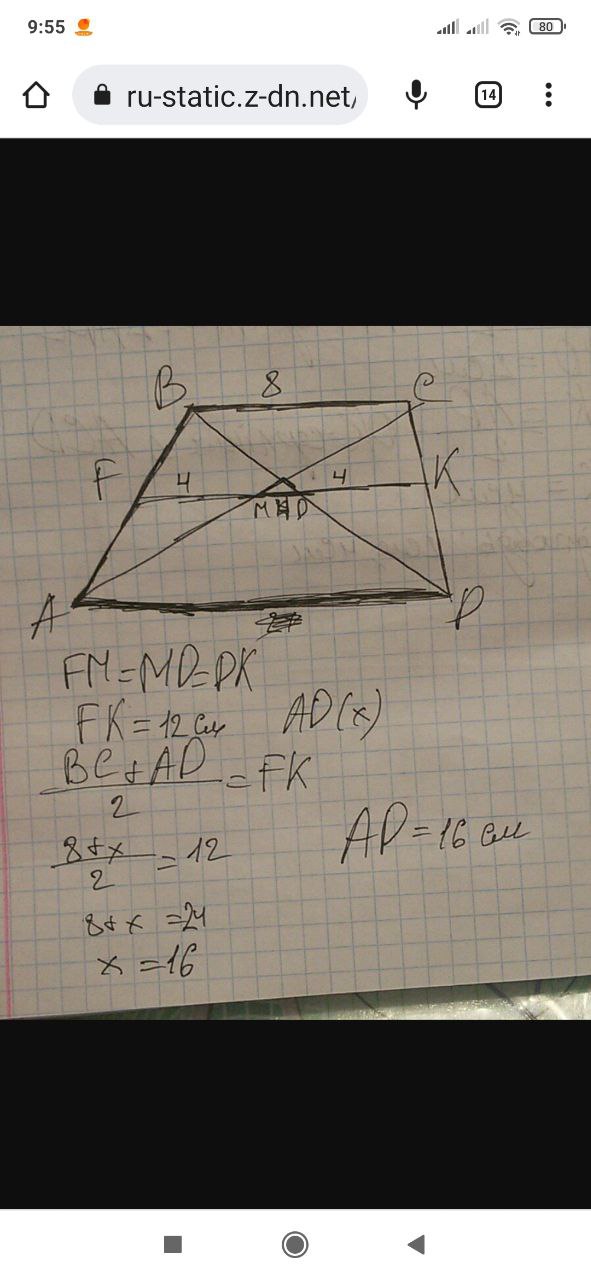 9:55
80
ru-static.z-dn.net/
14
B 8 C
F 4 4 K
M D
A D
FM=MD=DK
FK=12см AD(x)
BC+AD
2
=FK
8+x
2
=12
AD=16 см
8+x =24
x =16